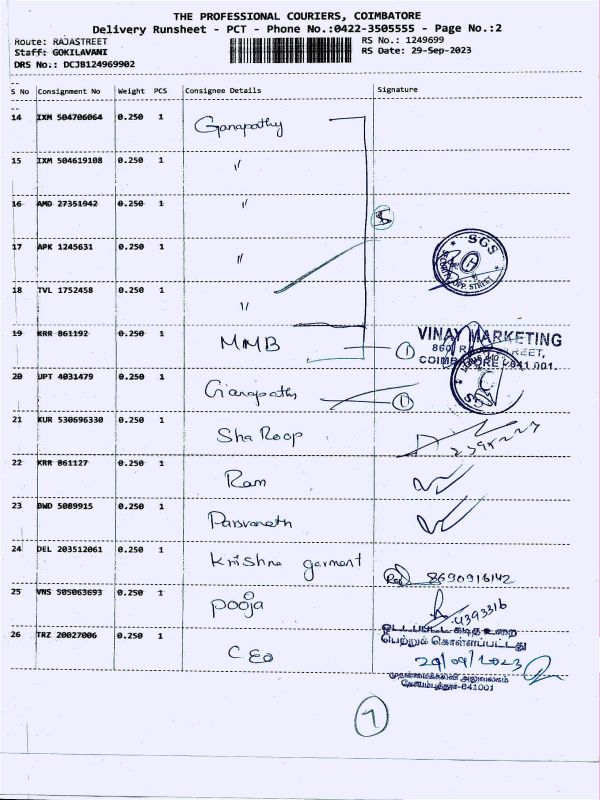 THE PROFESSIONAL COURIERS, COIMBATORE
Delivery Runsheet - PCT - Phone No.:0422-3505555 - Page No.:2
Route: RAJASTREET RS No.: 1249699
Staff: GOKILAVANI RS Date: 29-Sep-2023
DRS No.: DCJB124969902
S No Consignment No Weight PCS Consignee Details Signature
14 IXM 504706064 0.250 1 Ganapathy
15 IXM 504619108 0.250 1 "
16 AMD 27351942 0.250 1 "
5
17 APK 1245631 0.250 1 "
SGS
18 TVL 1752458 0.250 1 "
19 KRR 861192 0.250 1 MMB 1
VINAY MARKETING
STREET,
COIMBATORE - 641 001.
20 UPT 4031479 0.250 1 Ganapathy 1
21 KUR 530696330 0.250 1 Sha Roop
22 KRR 861127 0.250 1 Ram
23 BWD 5089915 0.250 1 Parsvanath
24 DEL 203512061 0.250 1 Krishna garment
8690916142
25 VNS 505063693 0.250 1 pooja
4393316
26 TRZ 20027006 0.250 1 CEO
கடித உறை
பெற்றுக் கொள்ளப்பட்டது
29/09/2023
முதன்மைக்கல்வி அலுவலகம்
கோயம்புத்தூர்-641001
7